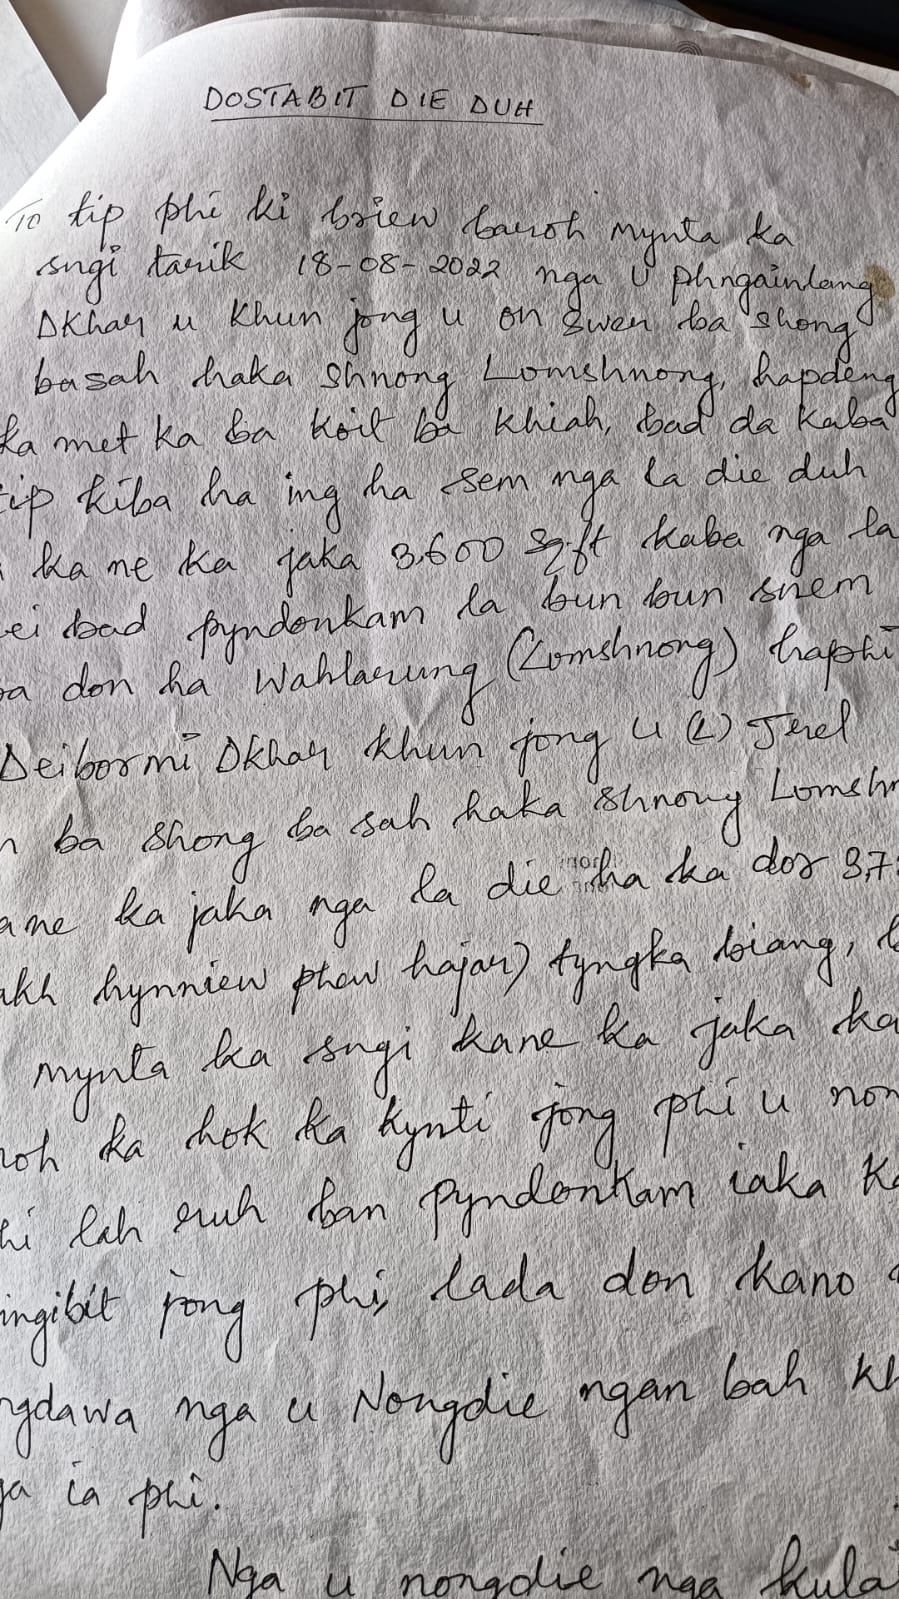 DOSTABIT DIE DUH
To tip phi ki briew baroh mynta ka
sngi tarik 18-08-2022 nga U Phngainlang
Dkhar u khun jong u on Swer ba shong
basah haka Shnong Lomshnong, hapdeng
ka met ka ba koit ba khiah, bad da kaba
tip kiba ha ing ha sem nga la die duh
ka ne ka jaka 3,600 Sq.ft kaba nga la
ei bad pyndonkam la bun bun snem
ba don ha Wahlarung (Lomshnong) haphi
Deibormi Dkhar khun jong u (L) Jerel
n ba shong ba sah haka Shnong Lomshn
ane ka jaka nga la die ha ka dor 3,7
akh hynniew phew hajar) tyngka biang,
mynta ka sngi kane ka jaka ka
roh ka hok ka kynti jong phi u non
hi lah ruh ban pyndonkam iaka ka
ingibit jong phi, lada don kano
ngdawa nga u Nongdie ngan bah kh
ga ia phi.
Nga u nongdie nga kular